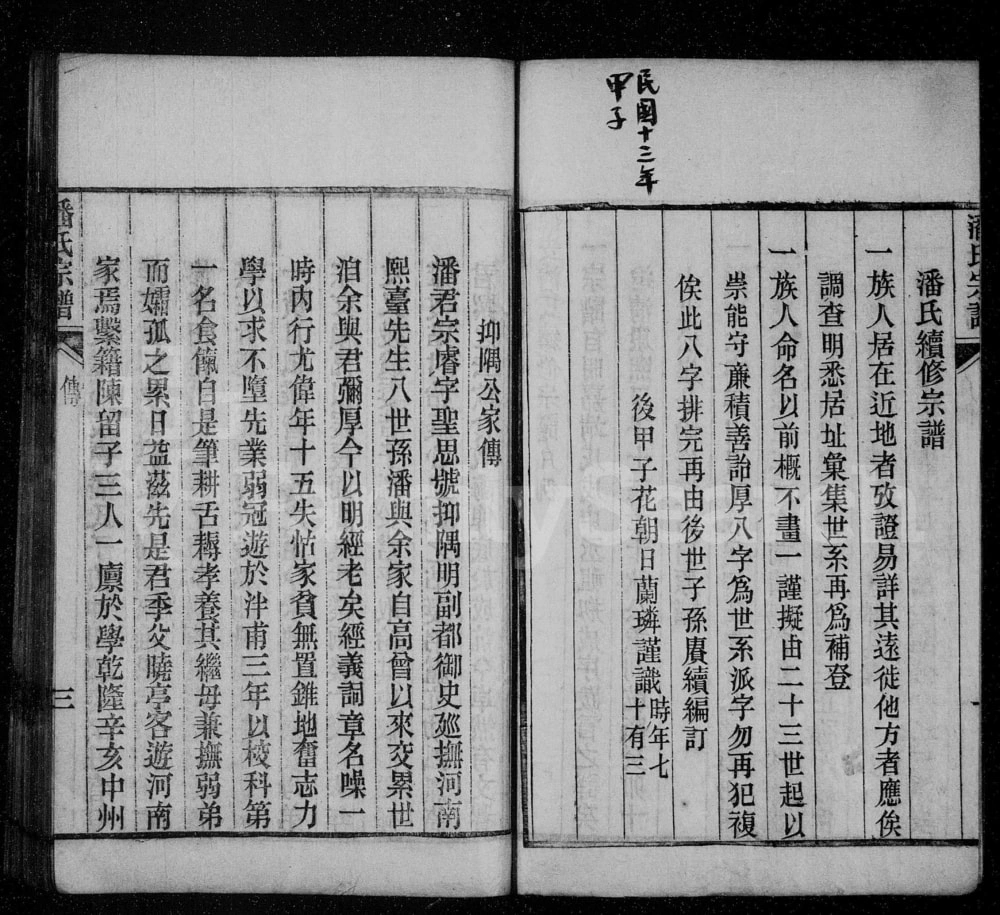 民國十三年
甲子
潘氏宗譜
潘氏續修宗譜
一族人居在近地者攷證易詳其遠徙他方者應俟
調查明悉居址彙集世系再爲補登
一族人命名以前概不畫一謹擬由二十三世起以
崇能守亷積善詒厚八字爲世系派字勿再犯複
俟此八字排完再由後世子孫賡續編訂
後甲子花朝日蘭璘謹識時年七十有三
抑隅公家傳
潘君宗睿字聖思號抑隅明副都御史廵撫河南
熙臺先生八世孫潘與余家自高曾以來交累世
洎余與君彌厚今以明經老矣經義詞章名噪一
時内行尤偉年十五失怙家貧無置錐地奮志力
學以求不墮先業弱冠遊於泮甫三年以校科第
一名食餼自是筆耕舌耨孝養其繼母兼撫弱弟
而孀孤之累日益茲先是君季父曉亭客遊河南
家焉繫籍陳留子三人一廪於學乾隆辛亥中州
潘氏宗譜
傳
三